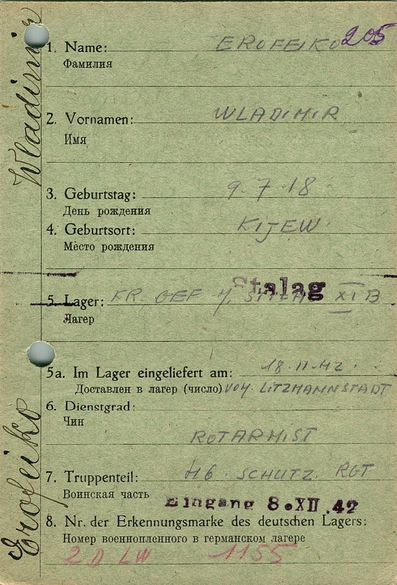 1. Name: EROFEIKO 205
Фамилия
Wladimir
2. Vornamen: WLADIMIR
Имя
3. Geburtstag: 9.7.18
День рождения
4. Geburtsort: KIJEW.
Мѣсто рождения
Stalag
5. Lager: KR. GEF. XI B
Лагерь
5a. Im Lager eingeliefert am: 18.11.42.
Доставлен в лагерь (число) VOM LITZMANNSTADT
6. Dienstgrad:
Чин
ROTARMIST
Erofeiko
7. Truppenteil: 46. SCHÜTZ. RGT
Воинская часть
Eingang 8.XII.42
8. Nr. der Erkennungsmarke des deutschen Lagers:
Номер военнопленного в германском лагере
LW 1155